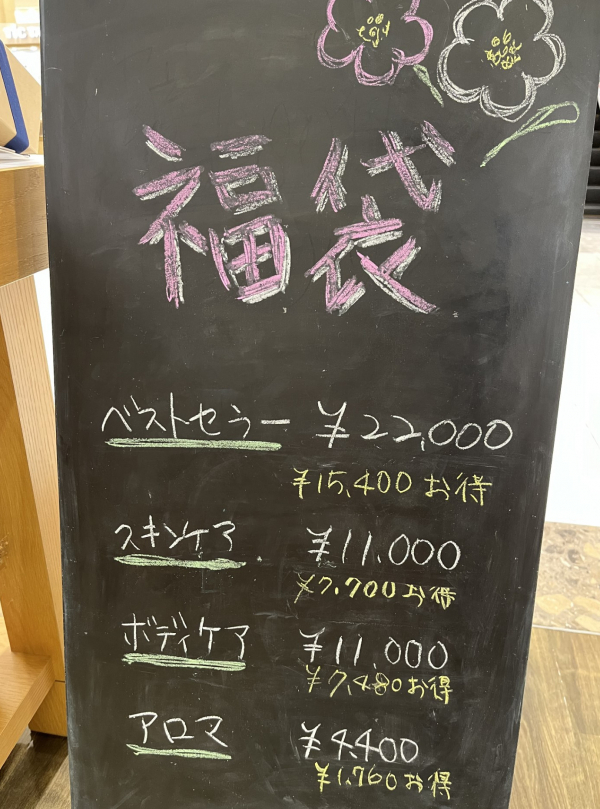 福袋
ベストセラー ¥22,000
¥15,400お得
スキンケア ¥11,000
¥7,700お得
ボディケア ¥11,000
¥7,480お得
アロマ ¥4,400
¥1,760お得